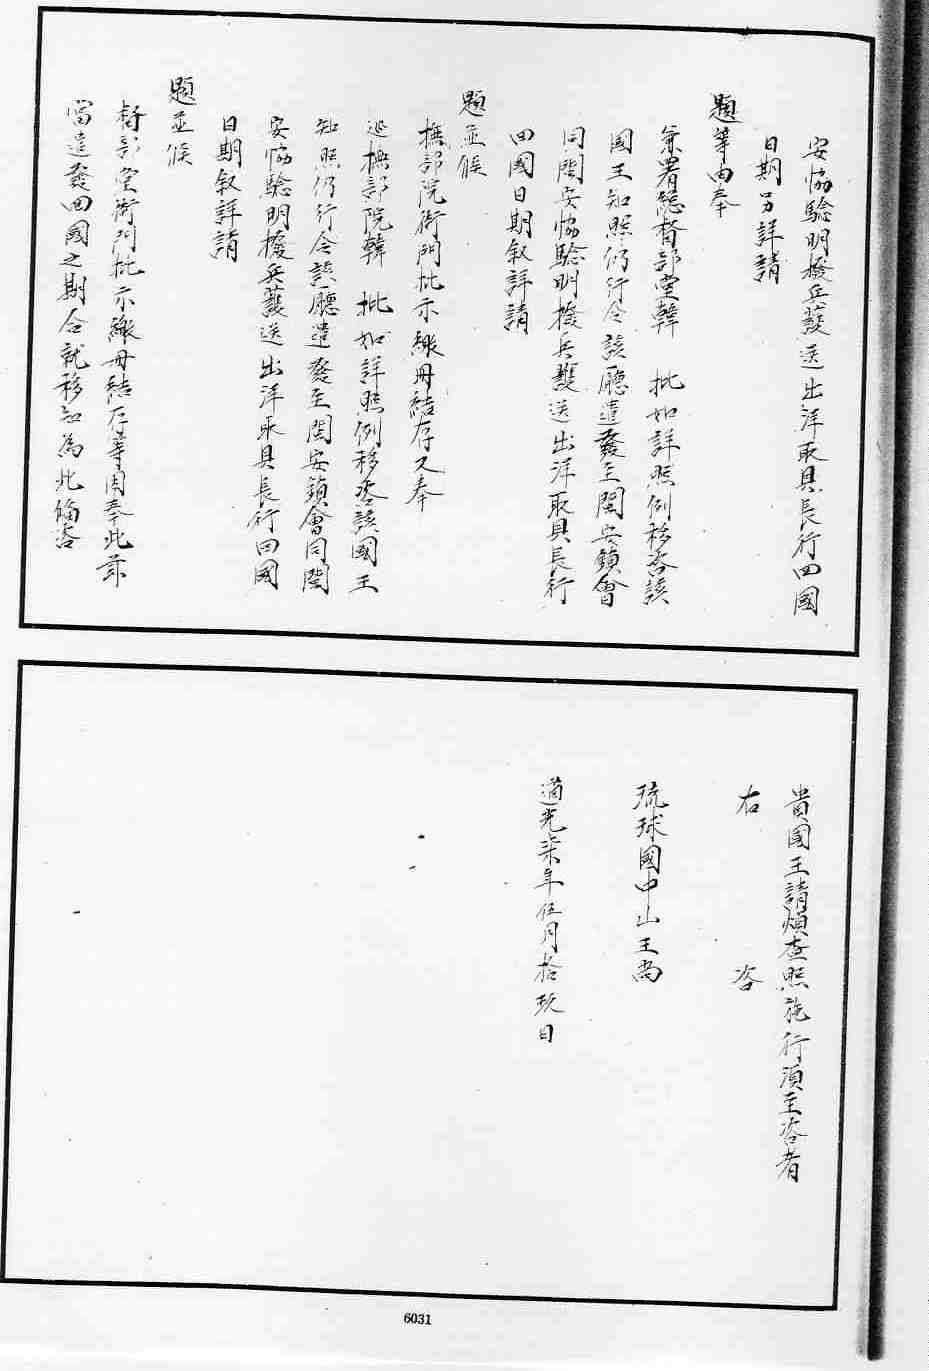 安協驗明撥兵護送出洋取具長行回國
日期另詳請
題等由奉
兼署總督部堂韓　批如詳照例移咨該
國王知照仍行令該廳遣發至閩安鎮會
同閩安協驗明撥兵護送出洋取具長行
回國日期敘詳請
題並候
撫部院衙門批示繳冊結存又奉
巡撫部院韓　批如詳照例移咨該國王
知照仍行令該廳遣發至閩安鎮會同閩
安協驗明撥兵護送出洋取具長行回國
日期敘詳請
題並候
督部堂衙門批示繳冊結存等因奉此茲
當遣發回國之期合就移知為此備咨
貴國王請煩查照施行須至咨者
右　咨
琉球國中山王尚
道光柒年伍月拾玖日
6031